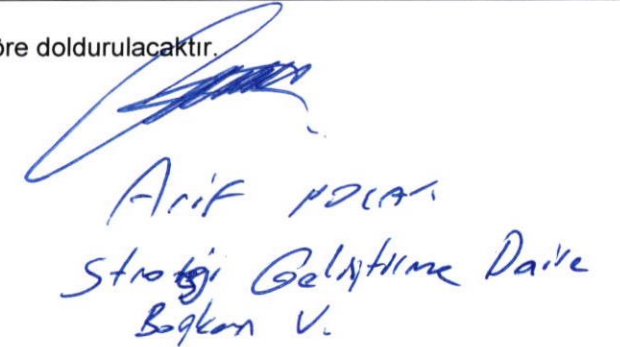 öre doldurulacaktır.
Arif
Strateji Geliştirme Daire
Başkan V.